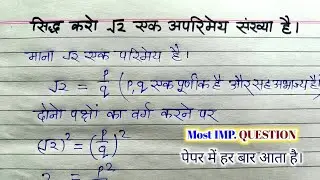 सिद्ध करो √2 एक अपरिमेय संख्या है।
माना √2 एक परिमेय है।
√2 = p/q (p,q एक पूर्णांक है और सह अभाज्य है)
दोनो पक्षों का वर्ग करने पर
(√2)² = (p/q)²
Most IMP. QUESTION
पेपर में हर बार आता है।